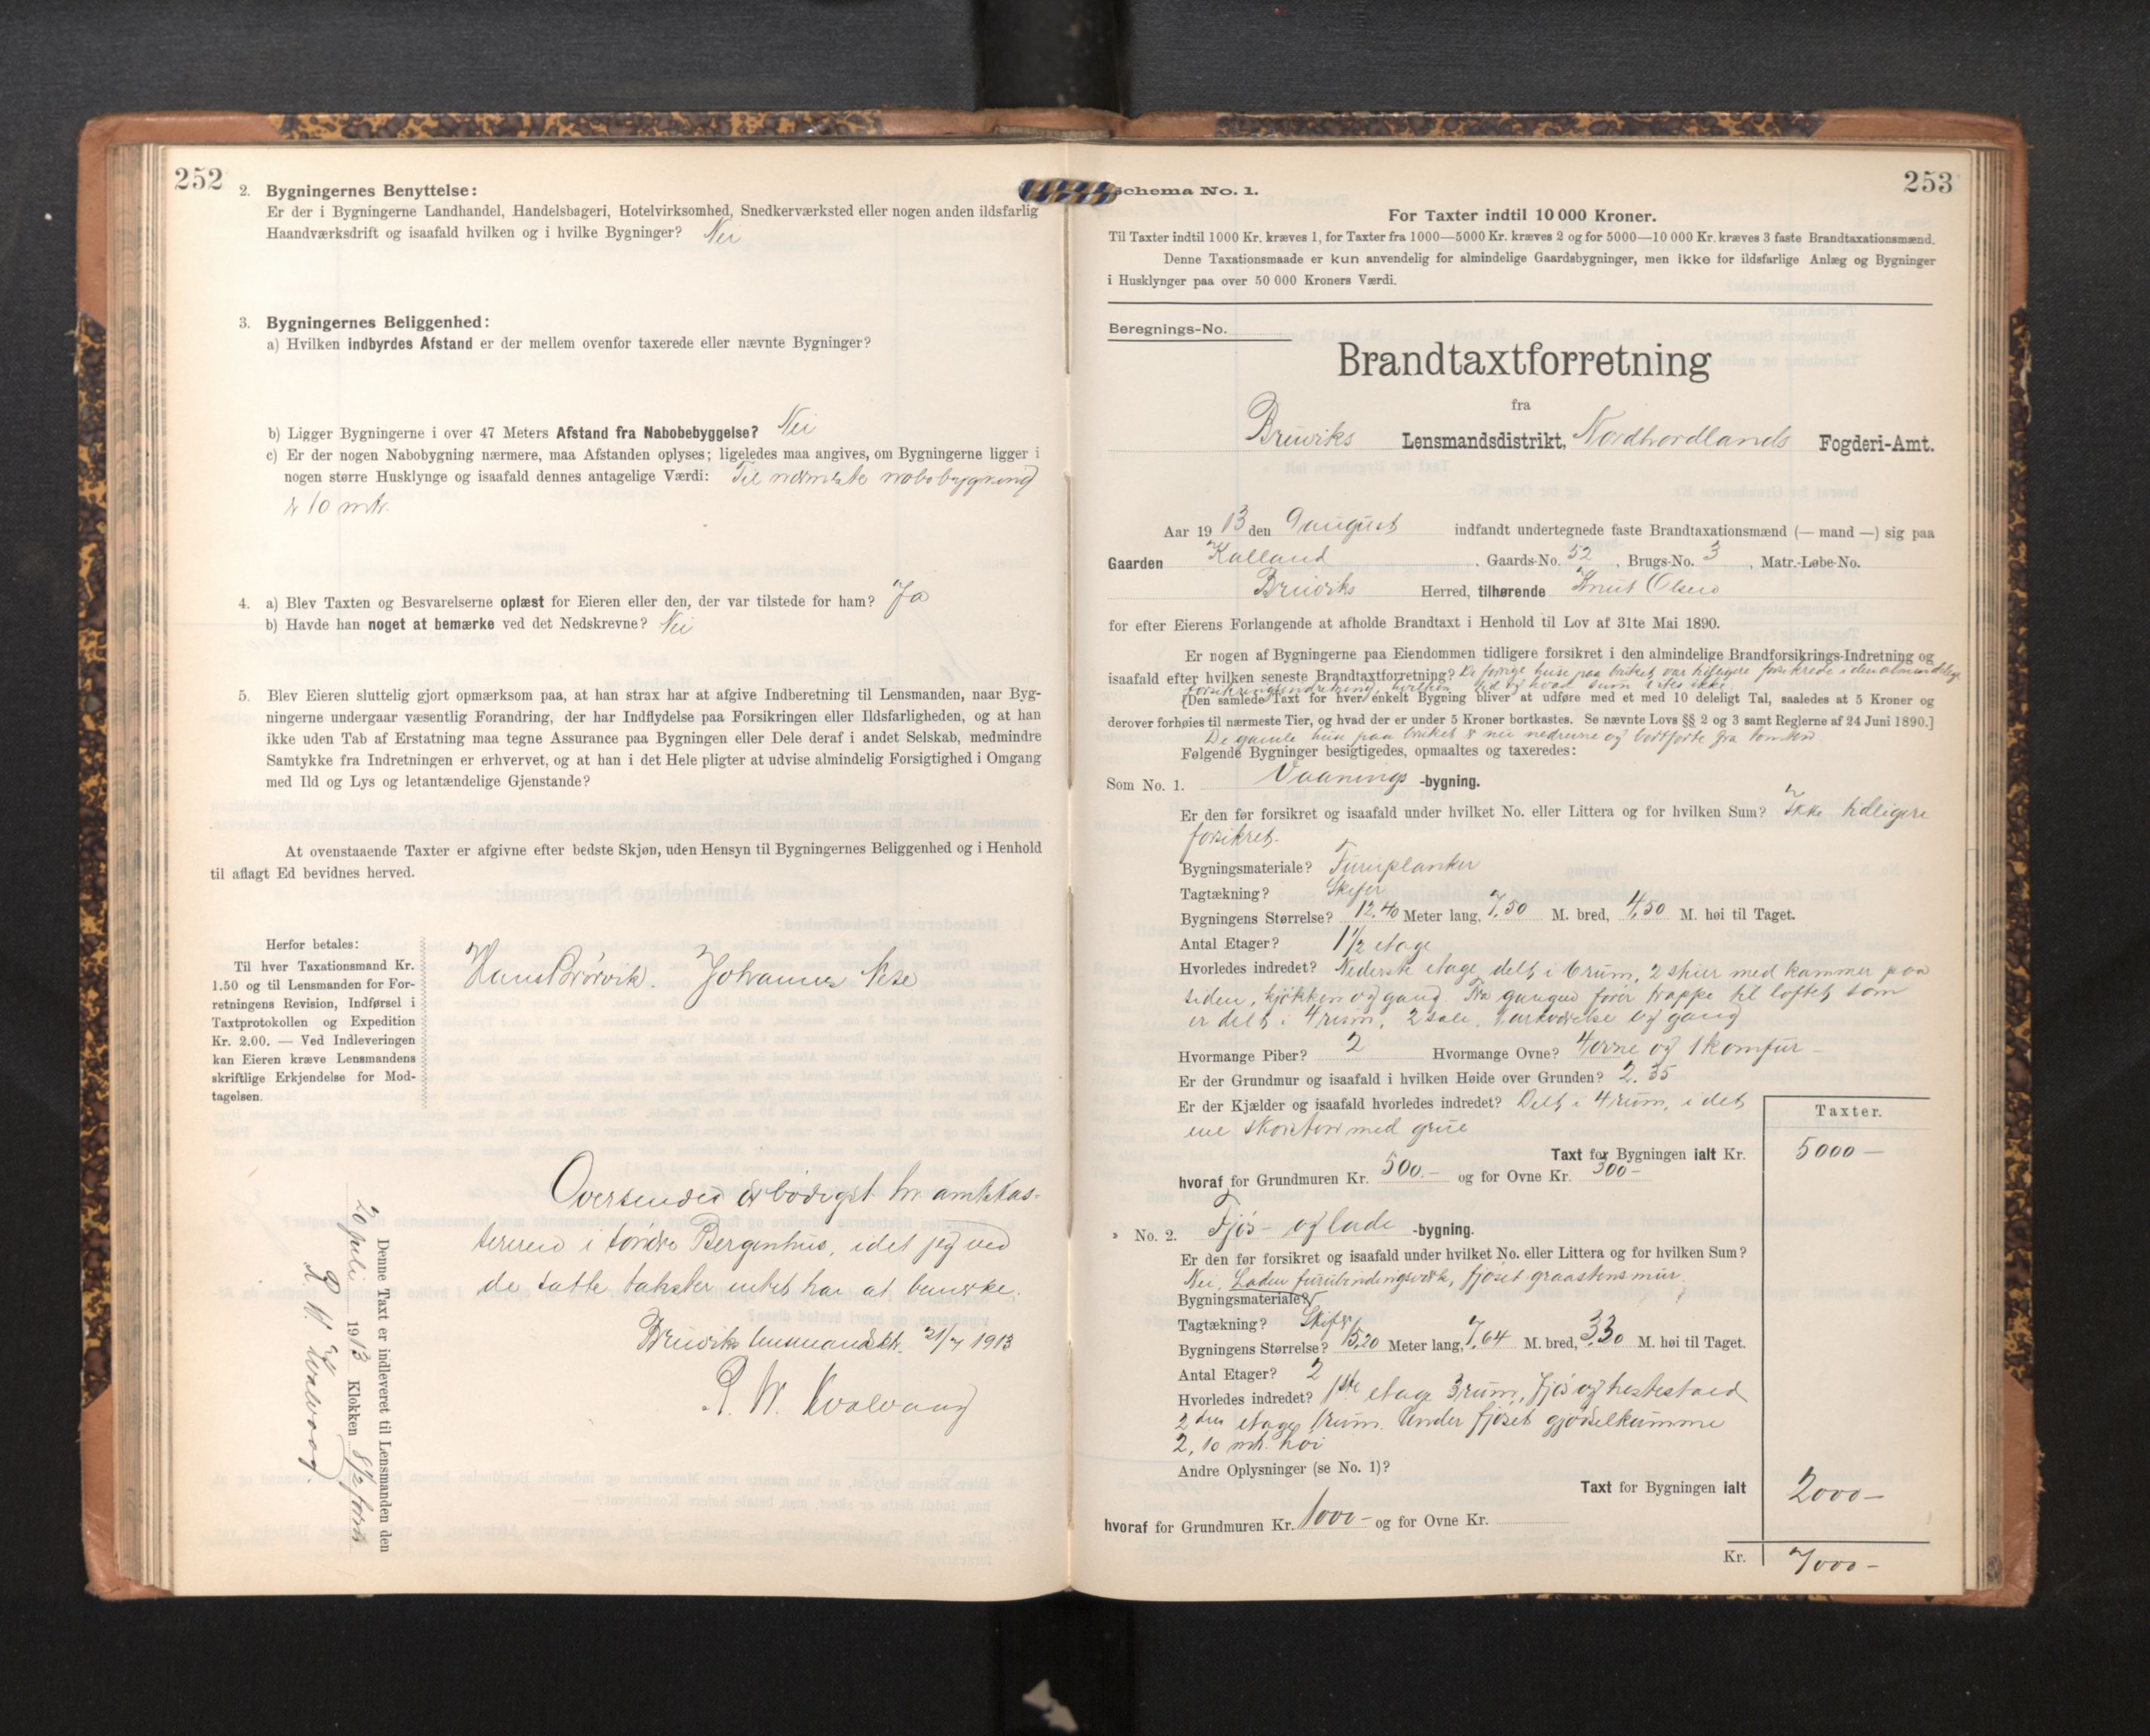 252
2. Bygningernes Benyttelse:
Er der i Bygningerne Landhandel, Handelsbageri, Hotelvirksomhed, Snedkerværksted eller nogen anden ildsfarlig
Haandværksdrift og isaafald hvilken og i hvilke Bygninger? Nei
3. Bygningernes Beliggenhed:
a) Hvilken indbyrdes Afstand er der mellem ovenfor taxerede eller nævnte Bygninger?
b) Ligger Bygningerne i over 47 Meters Afstand fra Nabobebyggelse? Nei
c) Er der nogen Nabobygning nærmere, maa Afstanden oplyses; ligeledes maa angives, om Bygningerne ligger i
nogen større Husklynge og isaafald dennes antagelige Værdi: Til nærmeste nabobygning
er 10 mtr.
4. a) Blev Taxten og Besvarelserne oplæst for Eieren eller den, der var tilstede for ham? Ja
b) Havde han noget at bemærke ved det Nedskrevne? Nei
5. Blev Eieren sluttelig gjort opmærksom paa, at han strax har at afgive Indberetning til Lensmanden, naar Byg-
ningerne undergaar væsentlig Forandring, der har Indflydelse paa Forsikringen eller Ildsfarligheden, og at han
ikke uden Tab af Erstatning maa tegne Assurance paa Bygningen eller Dele deraf i andet Selskab, medmindre
Samtykke fra Indretningen er erhvervet, og at han i det Hele pligter at udvise almindelig Forsigtighed i Omgang
med Ild og Lys og letantændelige Gjenstande?
At ovenstaaende Taxter er afgivne efter bedste Skjøn, uden Hensyn til Bygningernes Beliggenhed og i Henhold
til aflagt Ed bevidnes herved.
Herfor betales:
Til hver Taxationsmand Kr.
1.50 og til Lensmanden for For-
retningens Revision, Indførsel i
Taxtprotokollen og Expedition
Kr. 2.00. — Ved Indleveringen
kan Eieren kræve Lensmandens
skriftlige Erkjendelse for Mod-
tagelsen.
Hans Børvik. Johannes Nese
Oversendes ærbødigst hr. amtskas-
sereren i søndre Bergenhus, idet jeg ved
de satte takster intet har at bemerke.
Bruvik lensmandsktr. 21/7 1913
R. W. Kvalvaag
Denne Taxt er indleveret til Lensmanden den
20 juli 1913 Klokken 8 1/2 form
R. W. Kvalvaag
Schema No. 1.
253
For Taxter indtil 10 000 Kroner.
Til Taxter indtil 1000 Kr. kræves 1, for Taxter fra 1000—5000 Kr. kræves 2 og for 5000—10 000 Kr. kræves 3 faste Brandtaxationsmænd.
Denne Taxationsmaade er kun anvendelig for almindelige Gaardsbygninger, men ikke for ildsfarlige Anlæg og Bygninger
i Husklynger paa over 50 000 Kroners Værdi.
Beregnings-No.
Brandtaxtforretning
fra
Bruviks Lensmandsdistrikt, Nordhordlands Fogderi-Amt.
Aar 1913 den 9 august indfandt undertegnede faste Brandtaxationsmænd (— mand —) sig paa
Gaarden Kalland. Gaards-No. 52, Brugs-No. 3, Matr.-Løbe-No.
Bruviks Herred, tilhørende Knut Olsen
for efter Eierens Forlangende at afholde Brandtaxt i Henhold til Lov af 31te Mai 1890.
Er nogen af Bygningerne paa Eiendommen tidligere forsikret i den almindelige Brandforsikrings-Indretning og
isaafald efter hvilken seneste Brandtaxtforretning? De forrige huse paa bruket var tidligere forsikrede i den almindelige
forsikringsindretning, hvilken tid og hvad sum vites ikke
[Den samlede Taxt for hver enkelt Bygning bliver at udføre med et med 10 deleligt Tal, saaledes at 5 Kroner og
derover forhøies til nærmeste Tier, og hvad der er under 5 Kroner bortkastes. Se nævnte Lovs §§ 2 og 3 samt Reglerne af 24 Juni 1890.]
De gamle huse paa bruket er nu nedrevne og bortførte fra tomten.
Følgende Bygninger besigtigedes, opmaaltes og taxeredes:
Som No. 1. Vaanings-bygning.
Er den før forsikret og isaafald under hvilket No. eller Littera og for hvilken Sum? Ikke tidligere
forsikret.
Bygningsmateriale? Furuplanker
Tagtækning? Skifer
Bygningens Størrelse? 12,40 Meter lang, 7,50 M. bred, 4,50 M. høi til Taget.
Antal Etager? 1 1/2 etage
Hvorledes indredet? Nederste etage delt i 6 rum, 2 stuer med kammer paa
siden, kjøkken og gang. Fra gangen fører trappe til loftet som
er delt i 4 rum, 2 sale, 1 og gang
Hvormange Piber? 2 Hvormange Ovne? 4 ovne og 1 komfur —
Er der Grundmur og isaafald i hvilken Høide over Grunden? 2.35
Er der Kjælder og isaafald hvorledes indredet? Delt i 4 rum, i det
ene skorsten med grue
Taxter.
Taxt for Bygningen ialt Kr. 5000 —
hvoraf for Grundmuren Kr. 500.— og for Ovne Kr. 300—
" No. 2. Fjøs- og lade-bygning.
Er den før forsikret og isaafald under hvilket No. eller Littera og for hvilken Sum?
Nei. Laden furubindingsverk, fjøset graastensmur.
Bygningsmateriale?
Tagtækning? Skifer
Bygningens Størrelse? 15,20 Meter lang, 7,64 M. bred, 3,30 M. høi til Taget.
Antal Etager? 2
Hvorledes indredet? 1ste etage 3 rum, fjøs og hestestald
2den etage 1 rum. Under fjøset gjødselkumme
2,10 mtr. høi
Andre Oplysninger (se No. 1)?
Taxt for Bygningen ialt 2000—
hvoraf for Grundmuren Kr. 1000— og for Ovne Kr.
Kr. 7000—